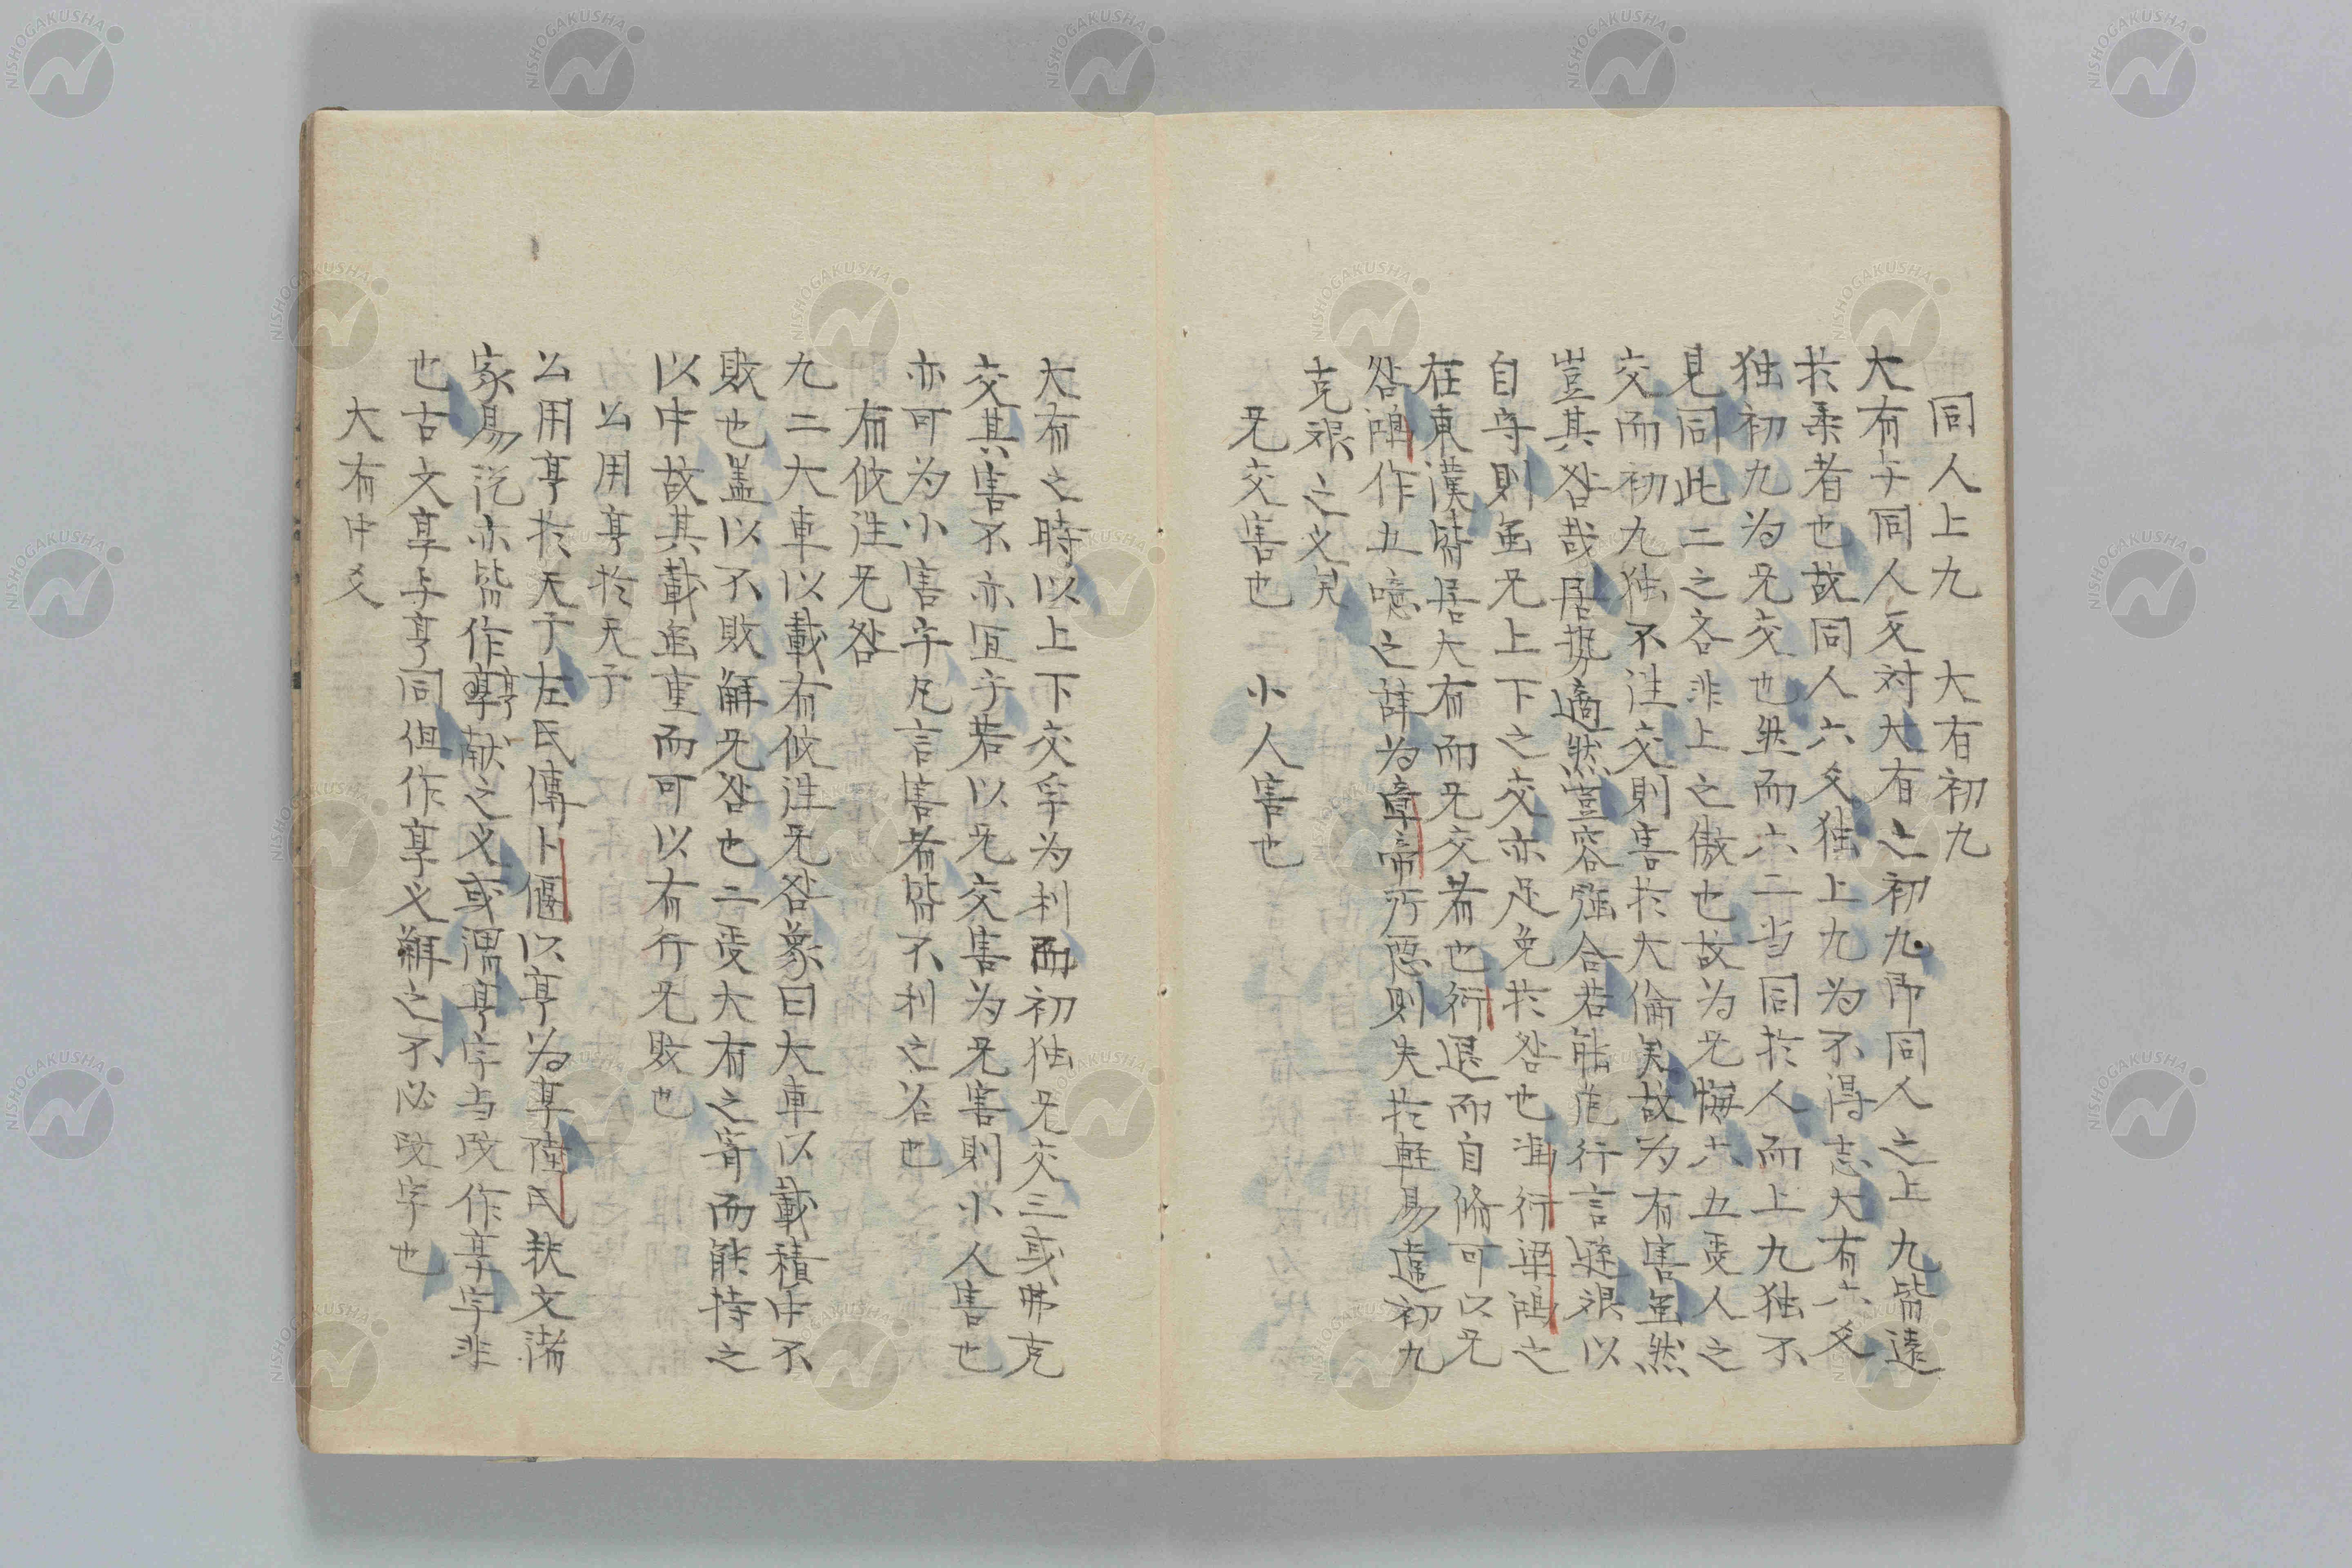 同人上九　大有初九
大有与同人反対大有之初九即同人之上九皆遠
於柔者也故同人六爻独上九為不得志大有六爻
独初九為无交也然而六二当同於人而上九独不
見同此二之吝非上之傲也故為无悔六五受人之
交而初九独不往交則害於大倫矣故為有害虽然
豈其咎哉居勢適然豈容強合若能危行言遜艱以
自守則虽无上下之交亦足免於咎也馮衍梁鴻之
在東漢皆居大有而无交者也衍退而自脩可以无
咎鴻作五噫之辞為章帝所悪則失於軽易違初九
克艱之义矣
无交害也　小人害也
大有之時以上下交孚為利而初独无交三或弗克
交其害不亦宜乎若以无交害為无害則小人害也
亦可為小害乎凡言害者皆不利之名也
有攸往无咎
九二大車以載有攸往无咎象曰大車以載積中不
敗也盖以不敗解无咎也二受大有之寄而能持之
以中故其載虽重而可以有行无敗也
公用亨於天子
公用亨於天子左氏傳卜偃以亨為享陸氏釈文諸
家易說亦皆作享献之义或谓亨字当改作享字非
也古文享与亨同但作享义解之不必改字也
大有中爻
NISHOGAKUSHA